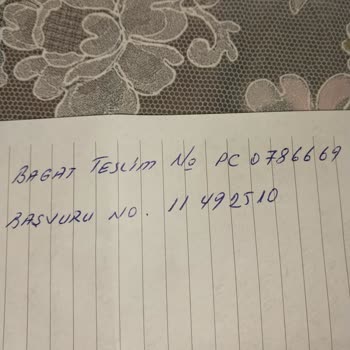 BAGAT TESLİM No PC 0786669
BAŞVURU NO. 11 492510